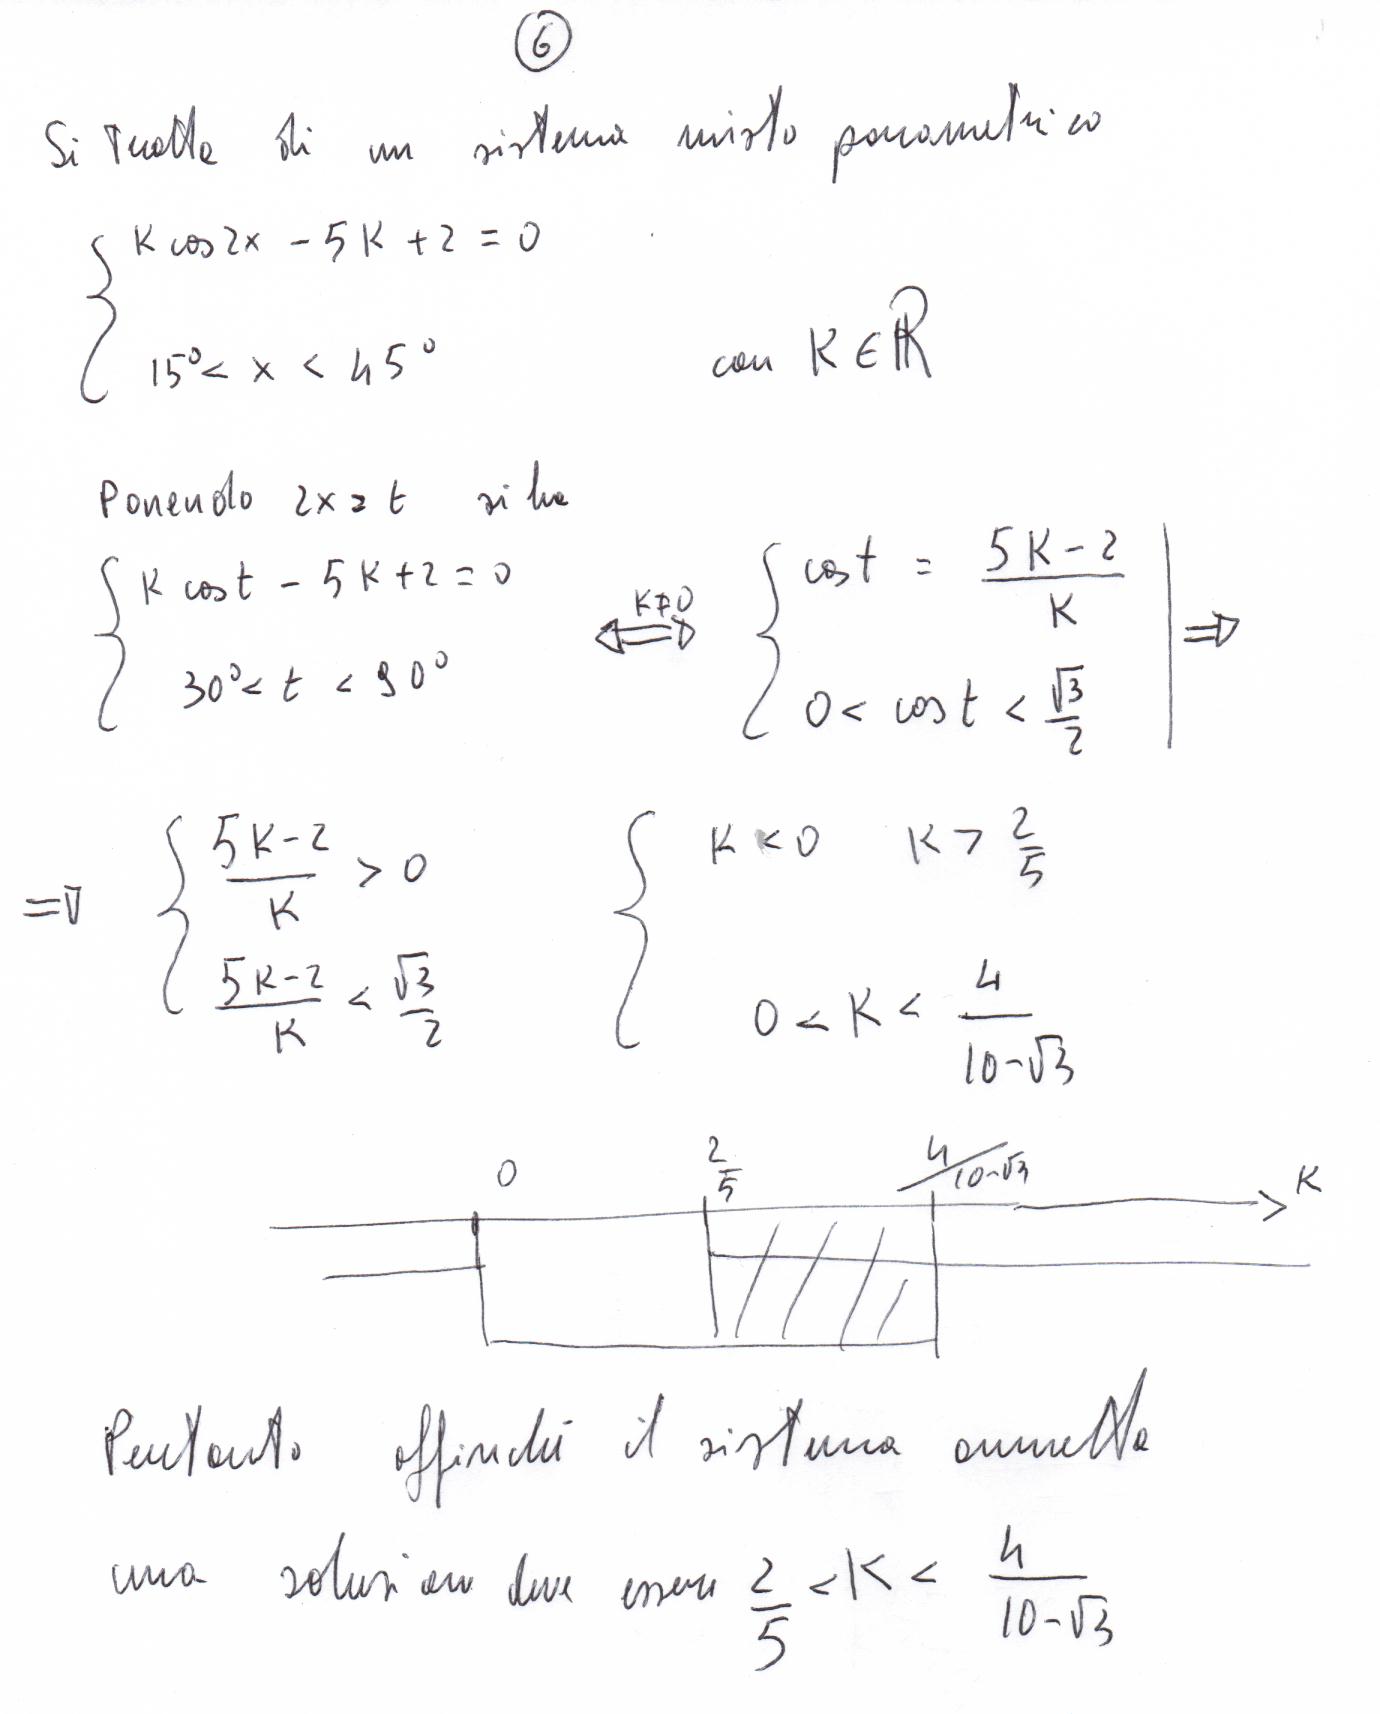 6
Si tratta di un sistema misto parametrico
{ K cos 2x - 5K + 2 = 0
15° < x < 45° con K ∈ ℝ
Ponendo 2x = t si ha
{ K cos t - 5K + 2 = 0 ⇔ K≠0 { cos t = (5K-2)/K | ⇒
30° < t < 90° 0 < cos t < √3/2
⇒ { (5K-2)/K > 0 { K < 0 K > 2/5
(5K-2)/K < √3/2 0 < K < 4/(10-√3)
0 2/5 4/(10-√3) K
Pertanto affinché il sistema ammetta
una soluzione deve essere 2/5 < K < 4/(10-√3)